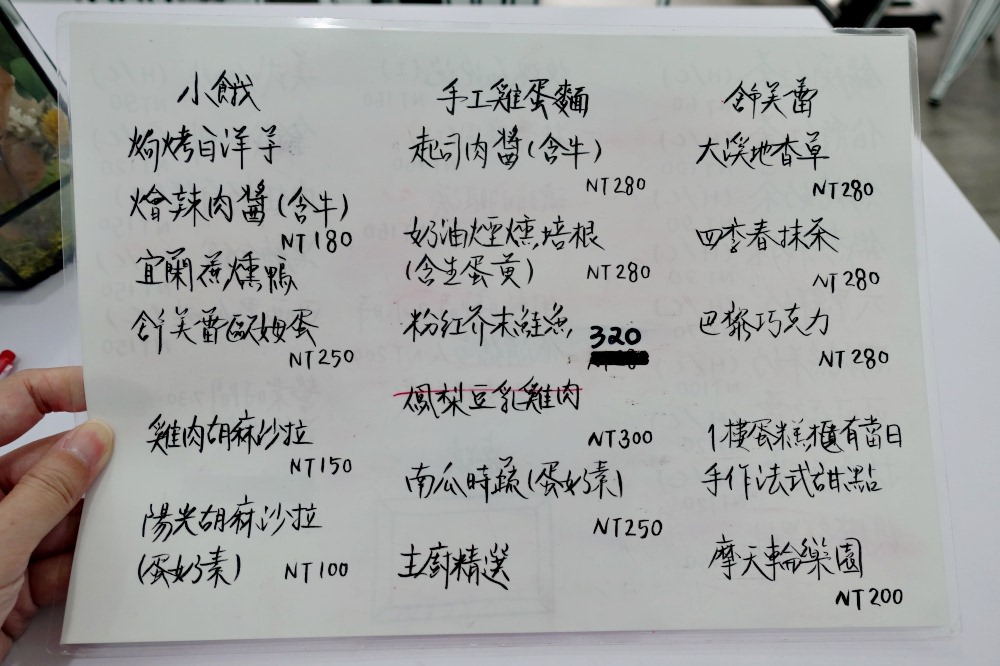 小餓
焗烤白洋芋
燴辣肉醬(含牛)
NT180
宜蘭蔗燻鴨
舒芙蕾歐姆蛋
NT250
雞肉胡麻沙拉
NT150
陽光胡麻沙拉
(蛋奶素) NT100
手工雞蛋麵
起司肉醬(含牛)
NT280
奶油煙燻培根
(含生蛋黃) NT280
粉紅芥末鮭魚
320
鳳梨豆乳雞肉
NT300
南瓜時蔬(蛋奶素)
NT250
主廚精選
舒芙蕾
大溪地香草
NT280
四季春抹茶
NT280
巴黎巧克力
NT280
1樓蛋糕櫃有當日
手作法式甜點
摩天輪樂園
NT200